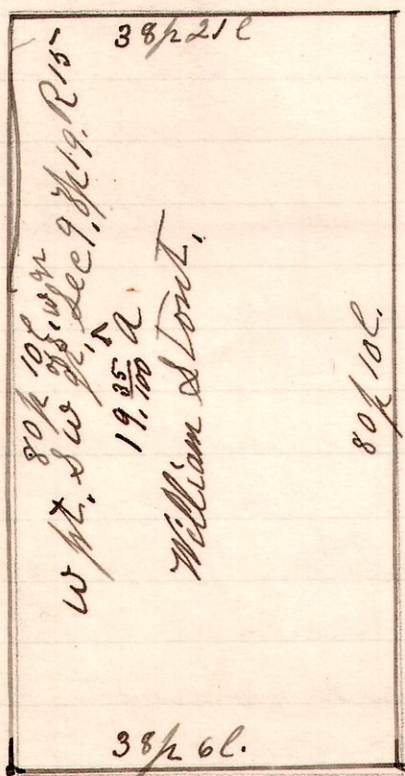 38p 21l
80p 10l
W pt. S W qr. Sec 9, Tp 19. R 15
of S. W. qr
19. 35/100 A
William Stout.
80p 10l.
38p 6l.